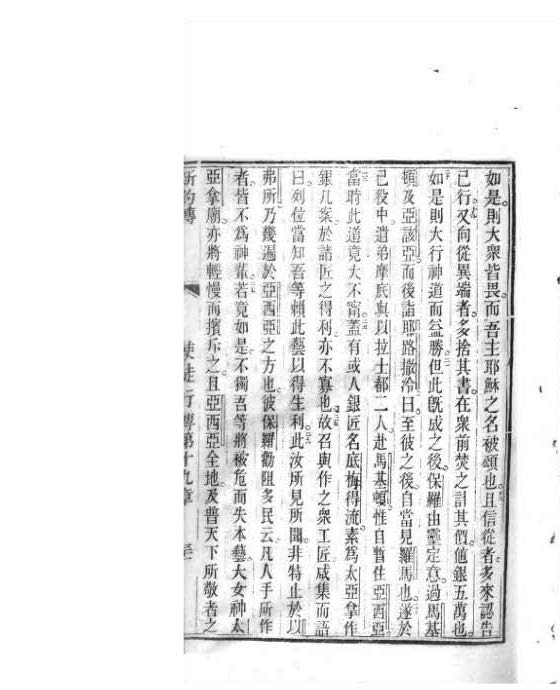 如是。則大衆皆畏。而吾主耶穌之名被頌也。且信從者多來認告
已行。又向從異端者。多捨其書。在衆前焚之。計其價。值銀五萬也。
如是則大行神道而益勝。但此既成之後。保羅由靈定意。過馬基
頓及亞該亞。而後詣耶路撒冷。曰。至彼之後。自當見羅馬也。遂於
己役中。遣弟摩底與以拉士都二人。赴馬基頓。惟自暫住亞西亞。
當時此道竟大不甯。蓋有或人銀匠名底梅得流。素爲太亞拿作
銀几案。於諸匠之得利。亦不寡也。故召與作之衆工匠咸集而語
曰。列位當知吾等賴此藝以得生利。此汝所見所聞。非特止於以
弗所。乃幾遍於亞西亞之方也。彼保羅勸阻多民云。凡人手所作
者。皆不爲神輩。若竟如是。不獨吾等將被危而失本藝。大女神太
亞拿廟。亦將輕慢而擯斥之。且亞西亞全地。及普天下所敬者之
新約傳 使徒行傳第十九章